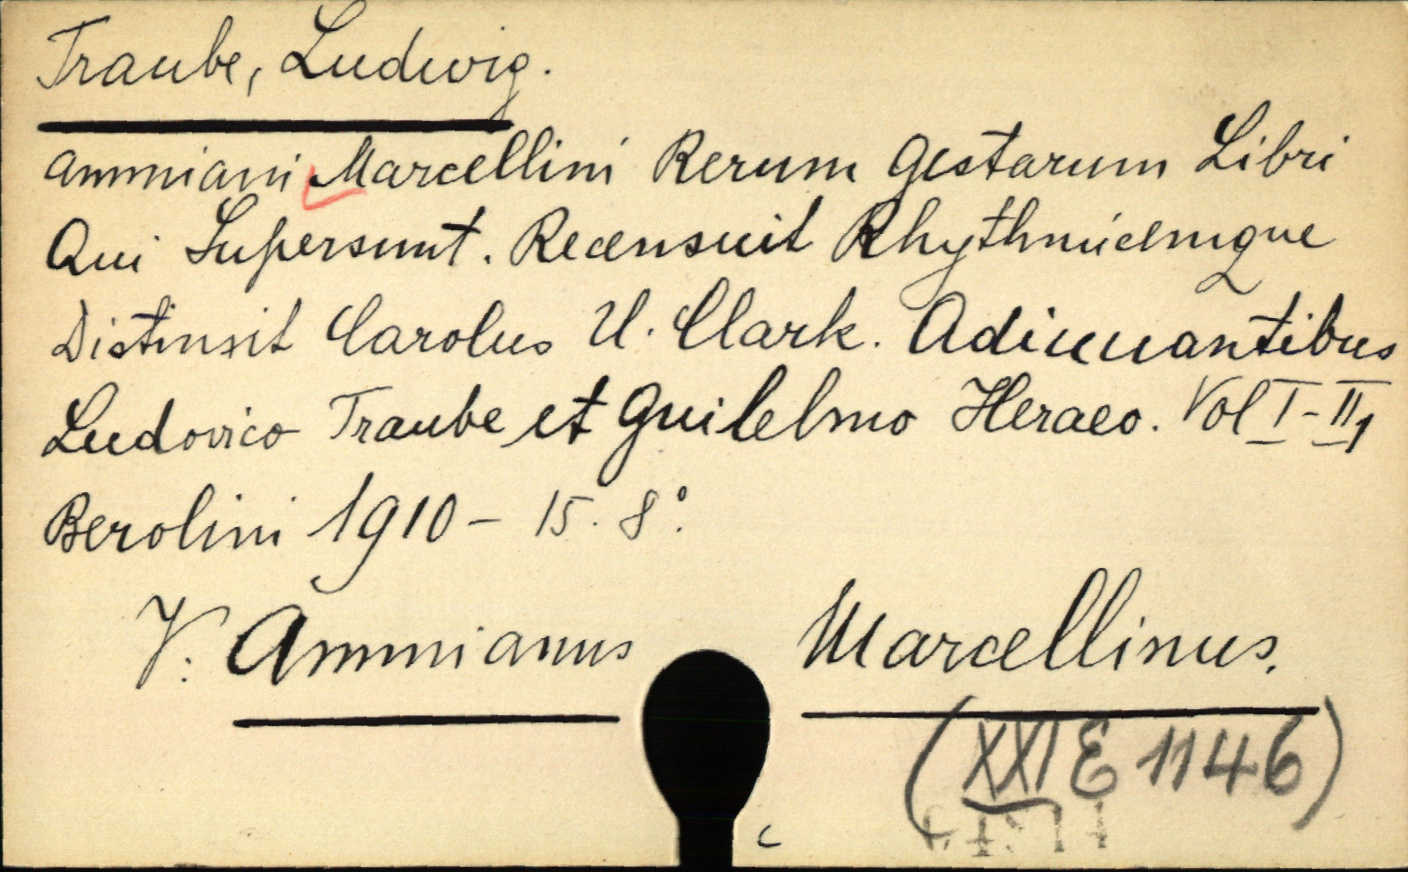 Traube, Ludwig.
Ammiani Marcellini Rerum Gestarum Libri
Qui Supersunt. Recensuit Rhythmicemque
Distinxit Carolus U. Clark. Adiuuantibus
Ludovico Traube et Guilelmo Heraeo. Vol I-II,
Berolini 1910-15. 8°.
V. Ammianus Marcellinus.
(XXI E 1146)
c